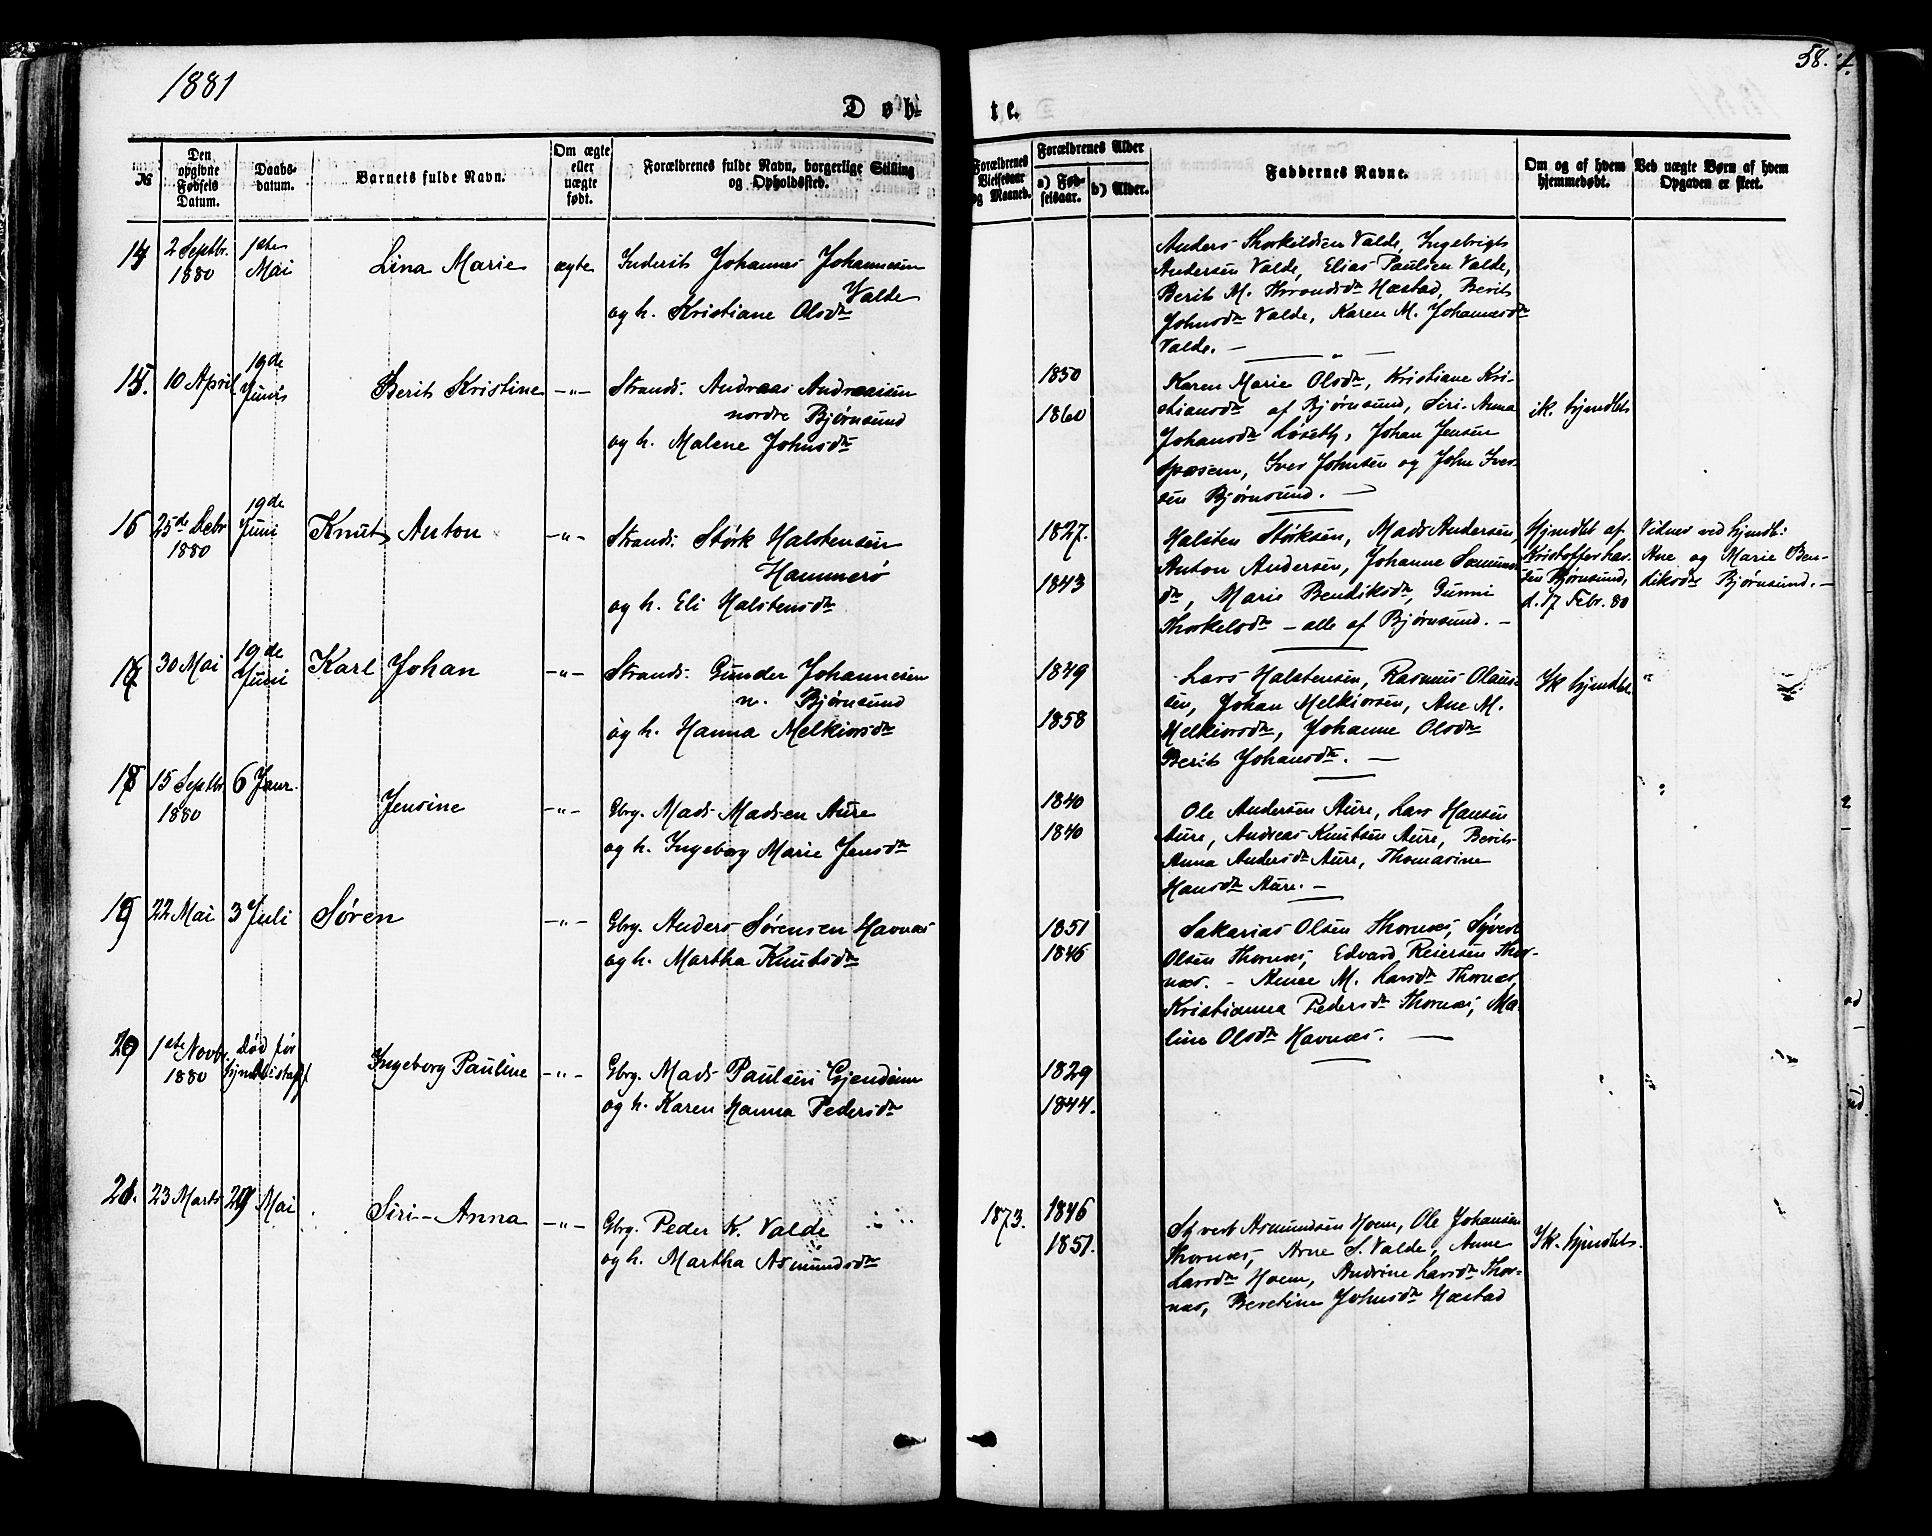 1881
58.
Døb-
te.
№
Den opgivne Fødsels Datum.
Daabs-datum.
Barnets fulde Navn.
Om ægte eller uægte født.
Forældrenes fulde Navn, borgerlige Stilling og Opholdssted.
Forældrenes Vielsesaar og Maaned.
Forældrenes Alder
a) Fød-selsaar.
b) Alder.
Faddernes Navne.
Om og af hvem hjemmedøbt.
Ved uægte Børn af hvem Opgaven er skeet.
14
2 Septbr.
1880
1ste
Mai
Lina Marie
ægte
Inderst Johannes Johannesen
Valde
og h. Kristiane Olsdtr
Anders Thorkildsen Valde, Ingebrigt
Andersen Valde, Elias Paulsen Valde,
Berit M. Throndsdtr Hæstad, Berit
Johnsdtr Valde, Karen M. Johannesdtr
Valde. —
15.
10 April
19de
Juni
Berit Kristine
—"—
Strands. Andreas Andreasen
nordre Bjørnsund
og h. Malene Johnsdtr
1850
1860
Karen Marie Olsdtr, Kristiane Kri-
stiansdtr af Bjørnsund, Siri-Anna
Johansdtr Løseth, Johan Jensen
Iver Johnsen og John Iver-
sen Bjørnsund. —
ik. hjmdbt
16
25de Debr
1880
19de
Juni
Knut Anton
—"—
Strands. Størk Halstensen
Hammerø
og h. Eli Halstensdtr
1827.
1843
Halsten Størksen, Mads Andersen,
Anton Andersen, Johanne Sæmunds
dtr, Marie Bendiksdtr, Gunni
Thorkelsdtr — alle af Bjørnsund. —
Hjmdbt af
Kristoffer Lar-
sen Bjørnsund,
d. 17 Febr. 80
Vidner ved hjmdb:
Ane og Marie Ben-
diksdtr Bjørnsund. —
17
30 Mai
19de
Juni
Karl Johan
—"—
Strands. Gunder Johannesen
n. Bjørnsund
og h. Hanna Melkiorsdtr
1849
1858
Lars Halstensen, Rasmus Olaus-
sen, Johan Melkiorsen, Ane M.
Melkiorsdtr, Johanne Olsdtr
Berit Johansdtr. —
Ik hjmdbt
"
18
15 Septbr
1880
6 Janr.
Jensine
—"—
Gbrg. Mads Madsen Aure
og h. Ingeborg Marie Jensdtr
1840
1840
Ole Andersen Aure, Lars Hansen
Aure, Andreas Knutsen Aure, Berit-
Anna Andersdtr Aure, Thomasine
Hansdtr Aure. —
19
22 Mai
3 Juli
Søren
—"—
Gbrg. Anders Sørensen Havnæs
og h. Martha Knutsdtr
1851
1846
Sakarias Olsen Thornæs, Syvert
Olsen Thornæs, Edvard Reiersen Thor-
næs. — Anne M. Larsdtr Thornæs,
Kristianna Pedersdtr Thornæs, Ma-
line Olsdtr Havnæs. —
20
1ste Novbr.
1880
Død før
Ingeborg Pauline
—"—
Gbrg. Mads Paulsen Gjendem
og h. Karen Hanna Pedersdtr
1829
1844.
21.
23 Marts
29 Mai
Siri-Anna
—"—
Gbrg. Peder K. Valde
og h. Martha Asmundsdtr
1873.
1846
1851.
Syvert Asmundsen Hoem, Ole Johansen
Thornæs, Arne S. Valde, Anne
Larsdtr Hoem, Andrine Larsdtr Thor-
næs, Beretine Johnsdtr Hæstad
Ik. hjmdbt.